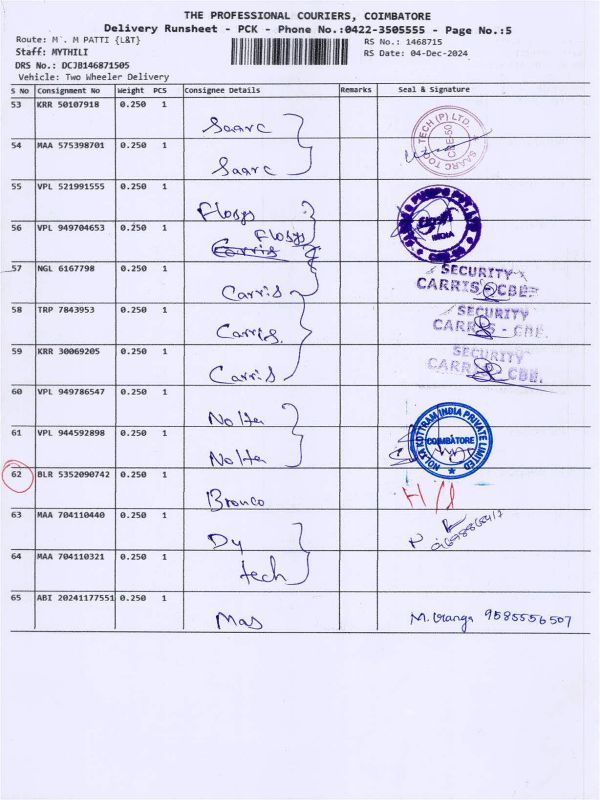 THE PROFESSIONAL COURIERS, COIMBATORE
Delivery Runsheet - PCK - Phone No.:0422-3505555 - Page No.:5
Route: M . M PATTI {L&T}
RS No.: 1468715
Staff: MYTHILI
RS Date: 04-Dec-2024
DRS No.: DCJB146871505
Vehicle: Two Wheeler Delivery
S No Consignment No Weight PCS Consignee Details Remarks Seal & Signature
53 KRR 50107918 0.250 1 Saarc
TECH (P) LTD
CBE-50
54 MAA 575398701 0.250 1 Saarc
55 VPL 521991555 0.250 1 Flosys
INDIA
56 VPL 949704653 0.250 1 Flosys
Carris
57 NGL 6167798 0.250 1 Carris
SECURITY
CARRIS - CBE.
58 TRP 7843953 0.250 1 Carris
SECURITY
CARRIS - CBE.
59 KRR 30069205 0.250 1 Carris
SECURITY
CARRIS CBE.
60 VPL 949786547 0.250 1 Nolta
61 VPL 944592898 0.250 1 Nolta
NOLSA KOTTRAM INDIA PRIVATE LIMITED
COIMBATORE
62 BLR 5352090742 0.250 1 Bronco
63 MAA 704110440 0.250 1 Dy
64 MAA 704110321 0.250 1 tech
65 ABI 20241177551 0.250 1 Mas M. 9585556507